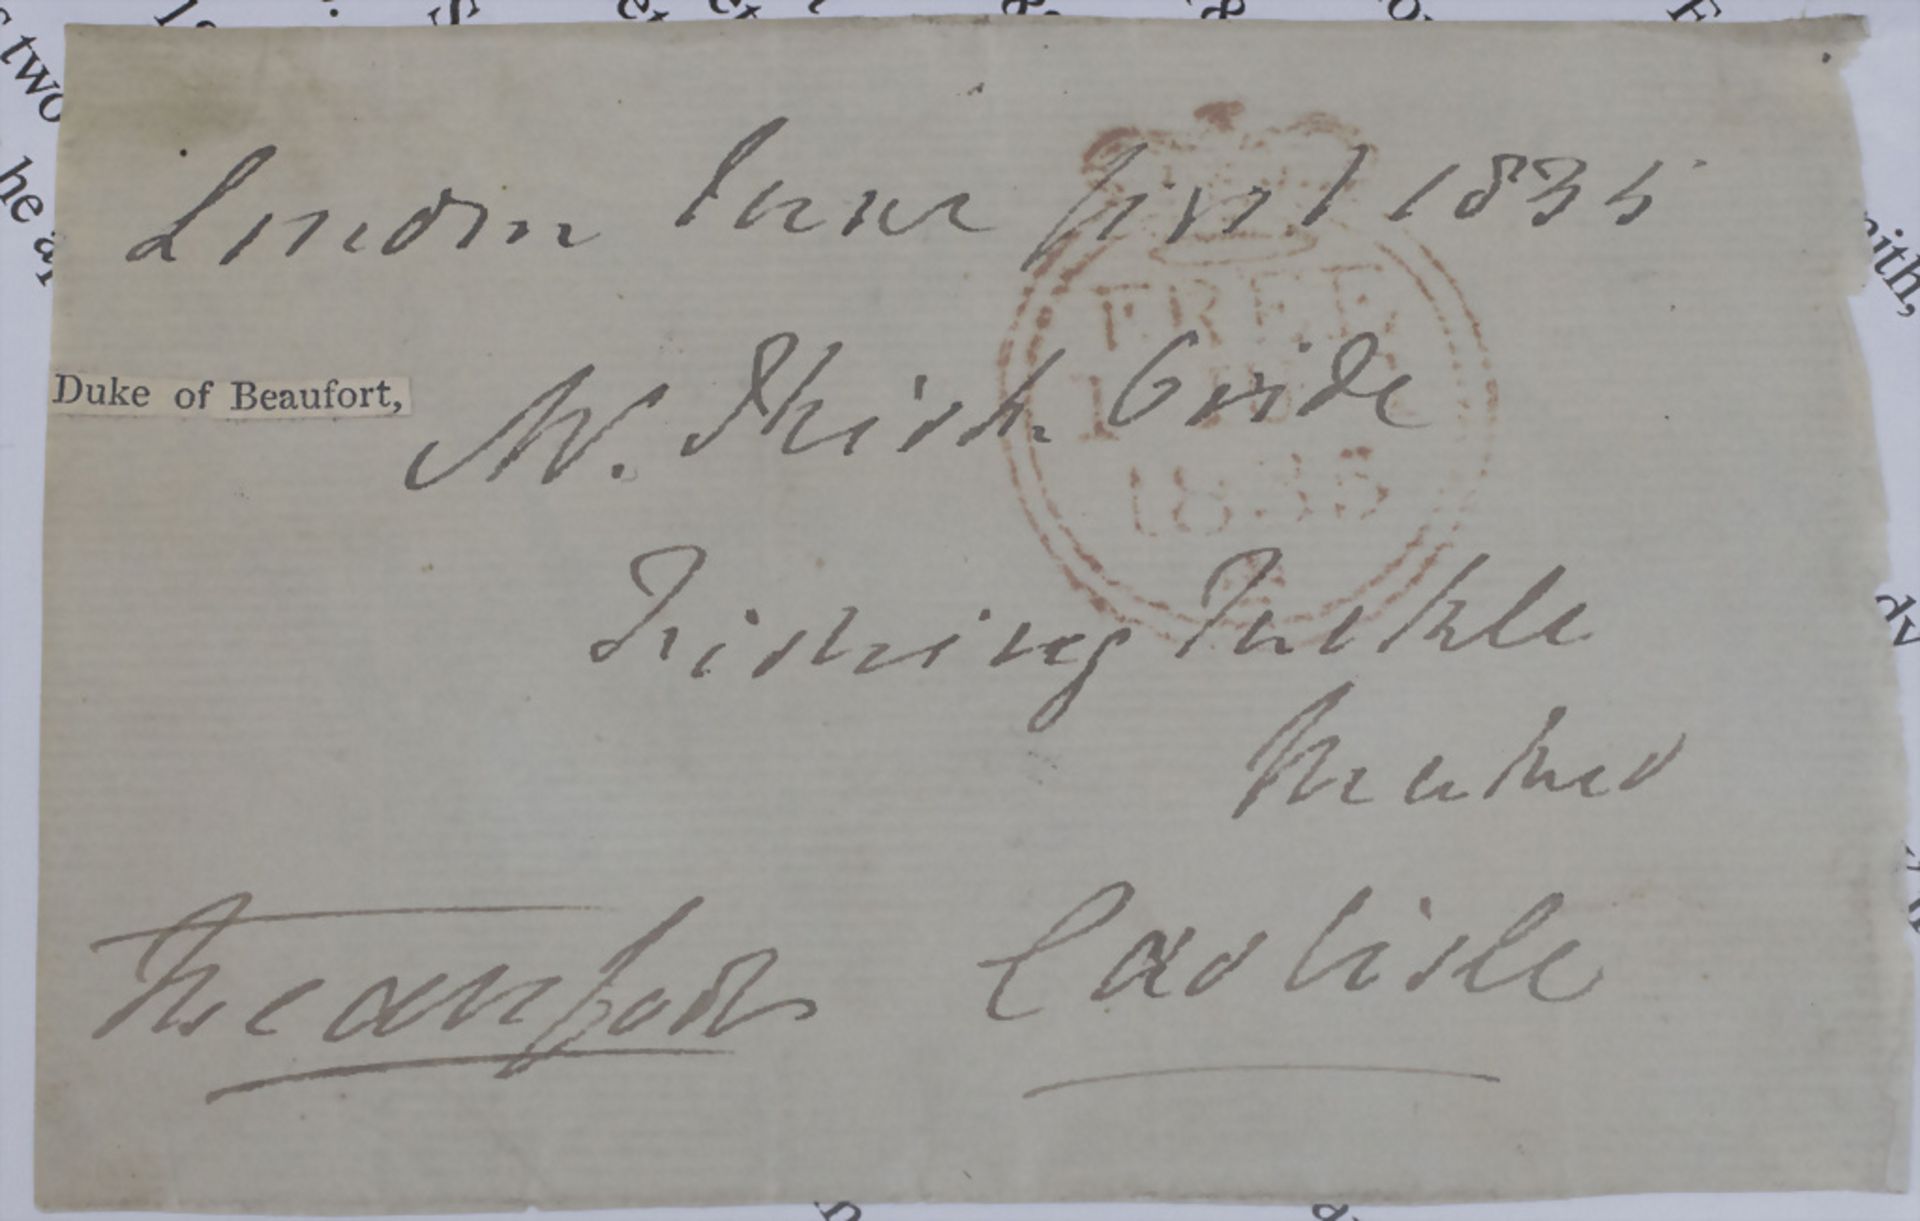 London June first 1835
FREE
1835
Duke of Beaufort,
Mr.
Fishing Tackle
Maker
Beaufort Carlisle
two
he